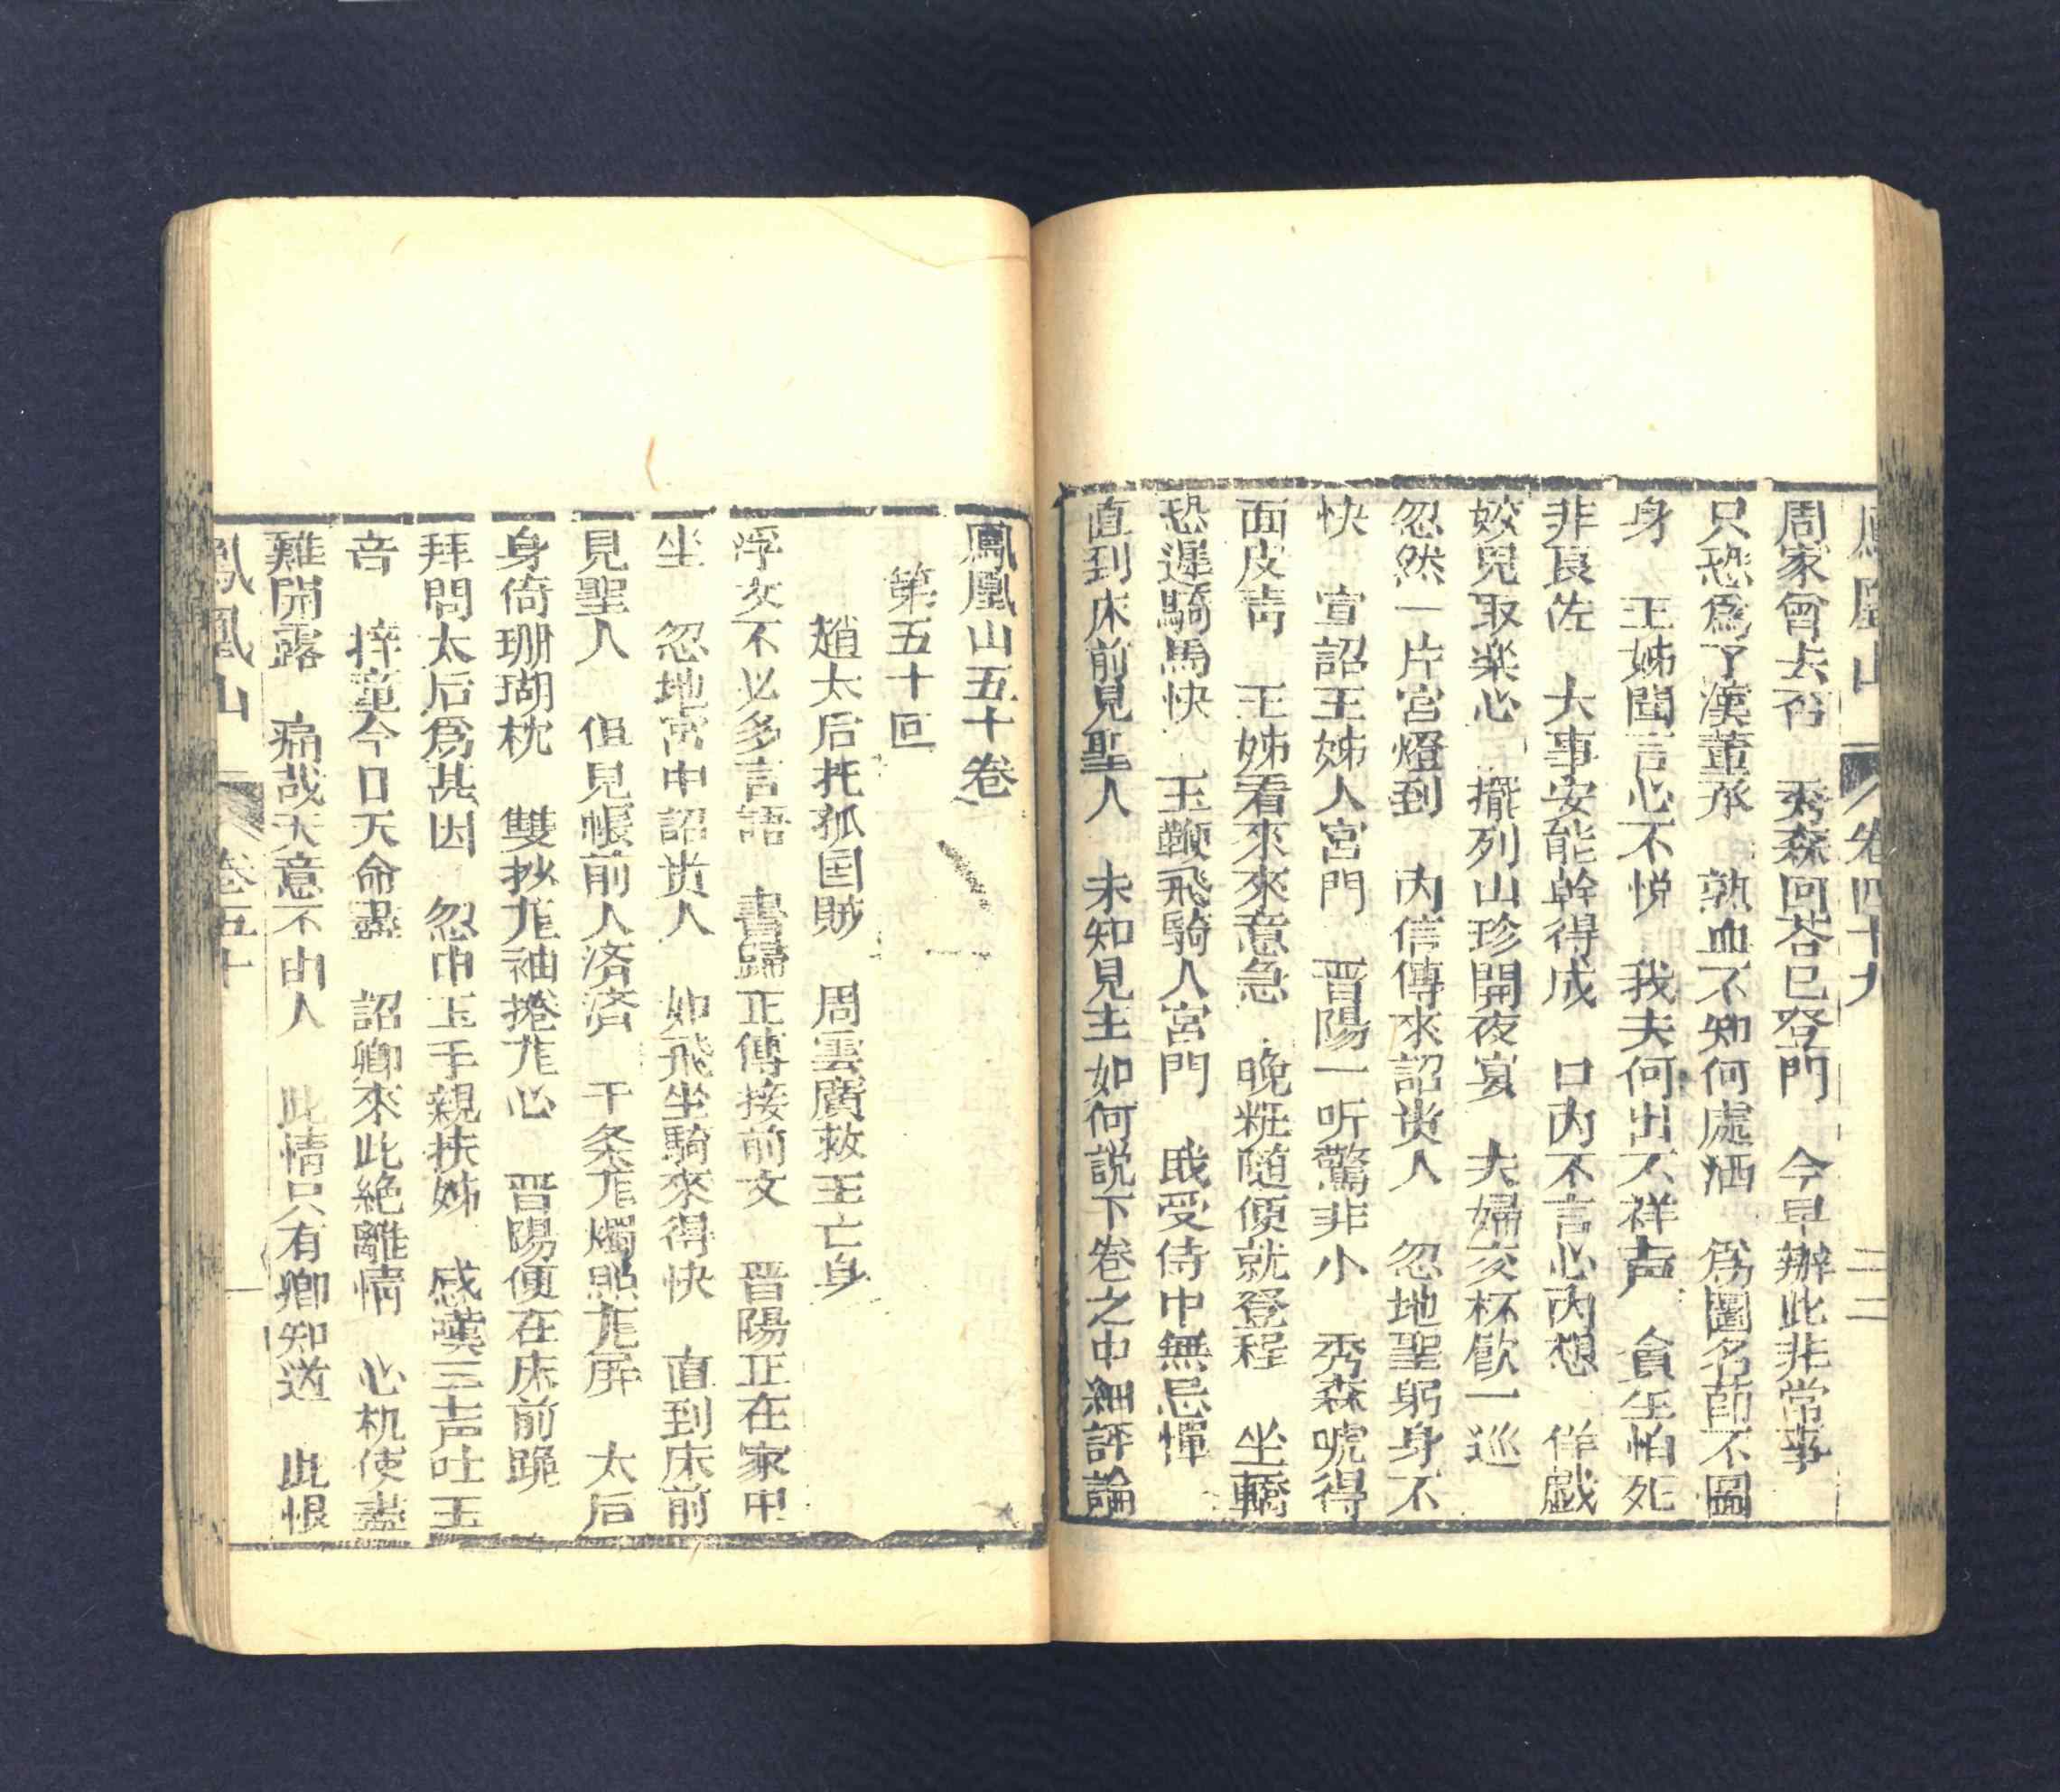 鳳凰山 卷四十九 二二
周家曾去否 秀森回荅已登門 今早辦此非常事
只恐爲了漢董承 熟血不知何處洒 爲圖名節不圖
身 王姊聞言心不悅 我夫何出不祥声 貪生怕死
非良佐 大事安能幹得成 口内不言心内想 佯戯
姣兒取楽心 擺列山珍開夜宴 夫婦交杯飮一巡
忽然一片宮燈到 内信傳來詔贵人 忽地聖躬身不
快 宣詔王姊人宮門 晋陽一听驚非小 秀森唬得
面皮青 王姊看來來意急 晚粧随便就登程 坐轎
恐遲騎馬快 玉鞭飛騎人宮門 戝受侍中無忌憚
直到床前見聖人 未知見主如何説下卷之中細評論
鳳凰山五十卷
第五十囘
趙太后托孤国賊 周雲廣救王亡身
浮文不必多言語 書歸正傳接前文 晋陽正在家中
坐 忽地宮中詔贵人 如飛坐騎來得快 直到床前
見聖人 但見帳前人済済 干条𠃵燭照𠃵屏 太后
身倚珊瑚枕 雙抄𠃵袖捲𠃵心 晋陽便在床前跪
拜問太后爲甚因 忽巾玉手親扶姊 感嘆三声吐玉
音 梓童今日天命盡 詔卿來此絶離情 心机使盡
難開露 痛哉天意不由人 此情只有卿知道 此恨
鳳凰山 卷五十 一